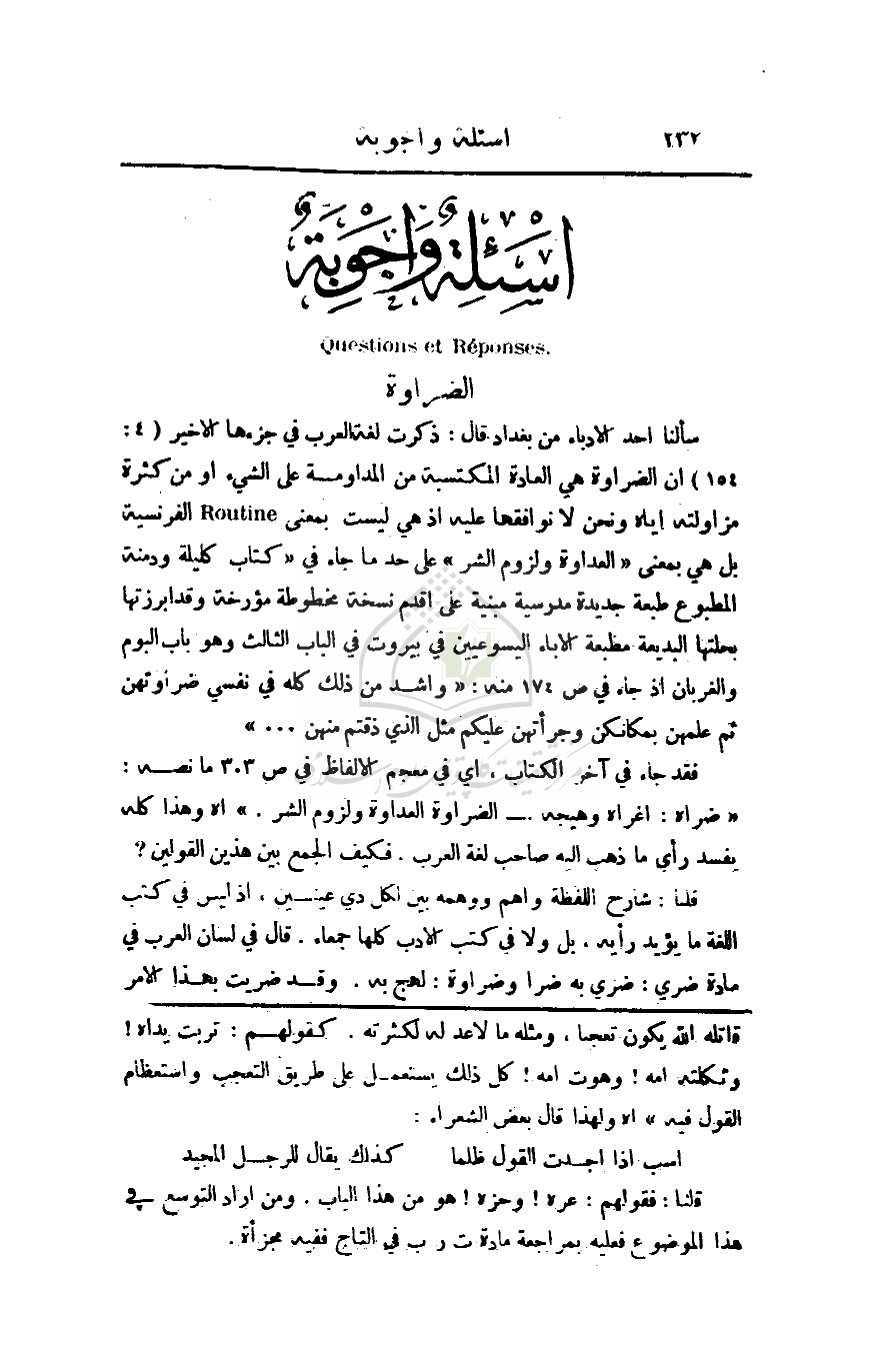 ٢٣٢ اسئلة واجوبة
اسْئِلَة وَاجْوِبَة
Questions et Réponses.
الضراوة
سألنا احد الادباء من بغداد قال : ذكرت لغة العرب في جزءها الاخير ( ٤ :
١٥٤ ) ان الضراوة هي العادة المكتسبة من المداومة على الشيء او من كثرة
مزاولته اياه ونحن لا نوافقها عليه اذ هي ليست بمعنى Routine الفرنسية
بل هي بمعنى « العداوة ولزوم الشر » على حد ما جاء في « كتاب كليلة ودمنة
المطبوع طبعة جديدة مدرسية مبنية على اقدم نسخة مخطوطة مؤرخة وقد ابرزتها
بحلتها البديعة مطبعة الاباء اليسوعيين في بيروت في الباب الثالث وهو باب البوم
والغربان اذ جاء في ص ١٧٤ منه : « واشد من ذلك كله في نفسي ضراوتهن
ثم علمهن بمكانكن وجرأتهن عليكم مثل الذي ذقتم منهن ... »
فقد جاء في آخر الكتاب ، اي في معجم الالفاظ في ص ٣٠٣ ما نصه :
« ضراه : اغراه وهيجه .ـــ الضراوة العداوة ولزوم الشر . » اه وهذا كله
يفسد رأي ما ذهب اليه صاحب لغة العرب . فكيف الجمع بين هذين القولين ?
قلنا : شارح اللفظة واهم ووهمه بين لكل ذي عينين ، اذ ليس في كتب
اللغة ما يؤيد رأيه ، بل ولا في كتب الادب كلها جمعاء . قال في لسان العرب في
مادة ضري : ضري به ضرا وضراوة : لهج به . وقد ضريت بهذا الامر
قاتله الله يكون تعجبا ، ومثله ما لا عد له لكثرته . كقولهم : تربت يداه !
وثكلته امه ! وهوت امه ! كل ذلك يستعمل على طريق التعجب واستعظام
القول فيه » اه ولهذا قال بعض الشعراء :
اسب اذا اجدت القول ظلما كذاك يقال للرجل المجيد
قلنا : فقولهم : عره ! وحزه ! هو من هذا الباب . ومن اراد التوسع في
هذا الموضوع فعليه بمراجعة مادة ت ر ب في التاج ففيه مجزأة .